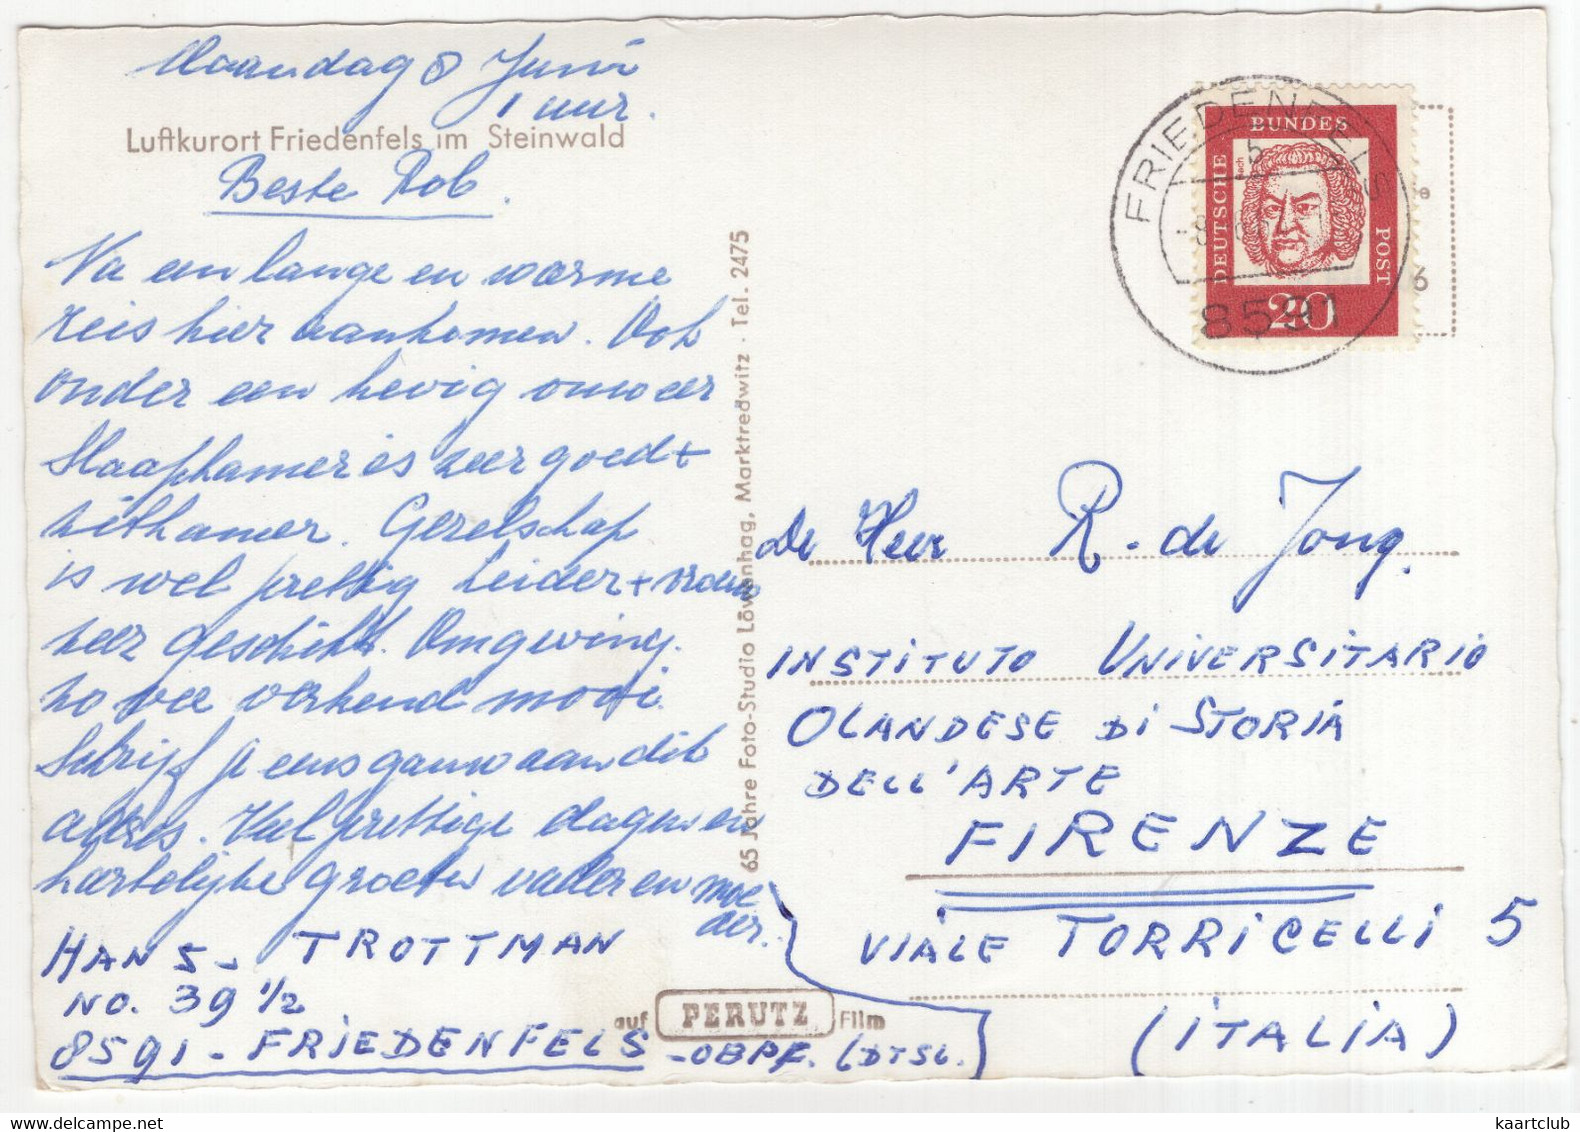 Maandag 8 Juni
1 uur.
Luftkurort Friedenfels im Steinwald
Beste Rob.
Na een lange en warme
reis hier aankomen. Ook
onder een hevig onweer
Slaapkamer is zeer goed +
zitkamer. Gezelschap
is wel prettig Leider +
zeer geschikt. Omgeving.
zo ver verkend mooi.
Schrijf je eens gauw aan dit
adres. Veel prettige dagen en
hartelijke groeten vader en moe
der.
HANS - TROTTMAN
NO. 39 1/2
8591 - FRIEDENFELS - OBPF. (DTSL.)
65 Jahre Foto-Studio Löwenhag, Marktredwitz · Tel. 2475
auf PERUTZ Film
FRIEDENFELS
8591
DEUTSCHE BUNDESPOST
Bach
20
De Heer R. de Jong.
INSTITUTO UNIVERSITARIO
OLANDESE DI STORIA
DELL'ARTE
FIRENZE
VIALE TORRICELLI 5
(ITALIA)
kaartclub